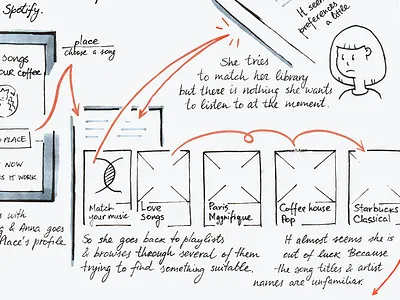 Spotify.
SONGS
OUR COFFEE
O PLACE
NOW
IT WORK
place
choose a song
It seem
preferences
a little
She tries
to match her library
but there is nothing she wants
to listen to at the moment.
Match
your music
Love
songs
Paris
Magnifique
Coffee house
Pop
Starbucks
Classical
s with
g & Anna goes
Place's profile.
So she goes back to playlists
& browses through several of them
trying to find something suitable.
It almost seems she is
out of luck because
the song titles & artist
names are unfamiliar.